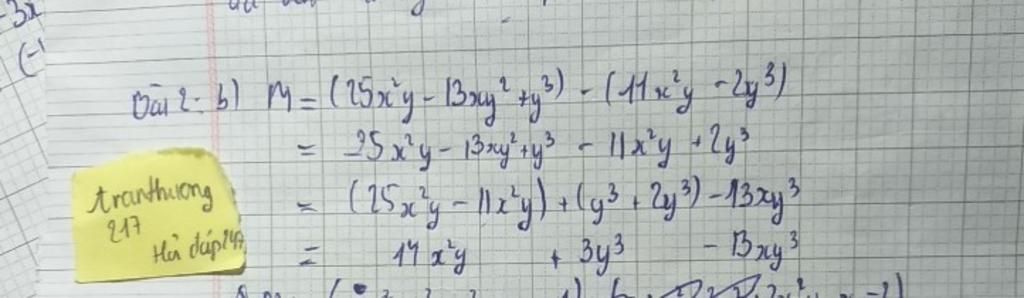 -3x
(-1
Bài 2: b) M = (25x²y - 13xy² + y³) - (11x²y - 2y³)
= 25x²y - 13xy² + y³ - 11x²y + 2y³
= (25x²y - 11x²y) + (y³ + 2y³) - 13xy³
= 14x²y + 3y³ - 13xy³
tranthuong
217
Hỏi đáp 247